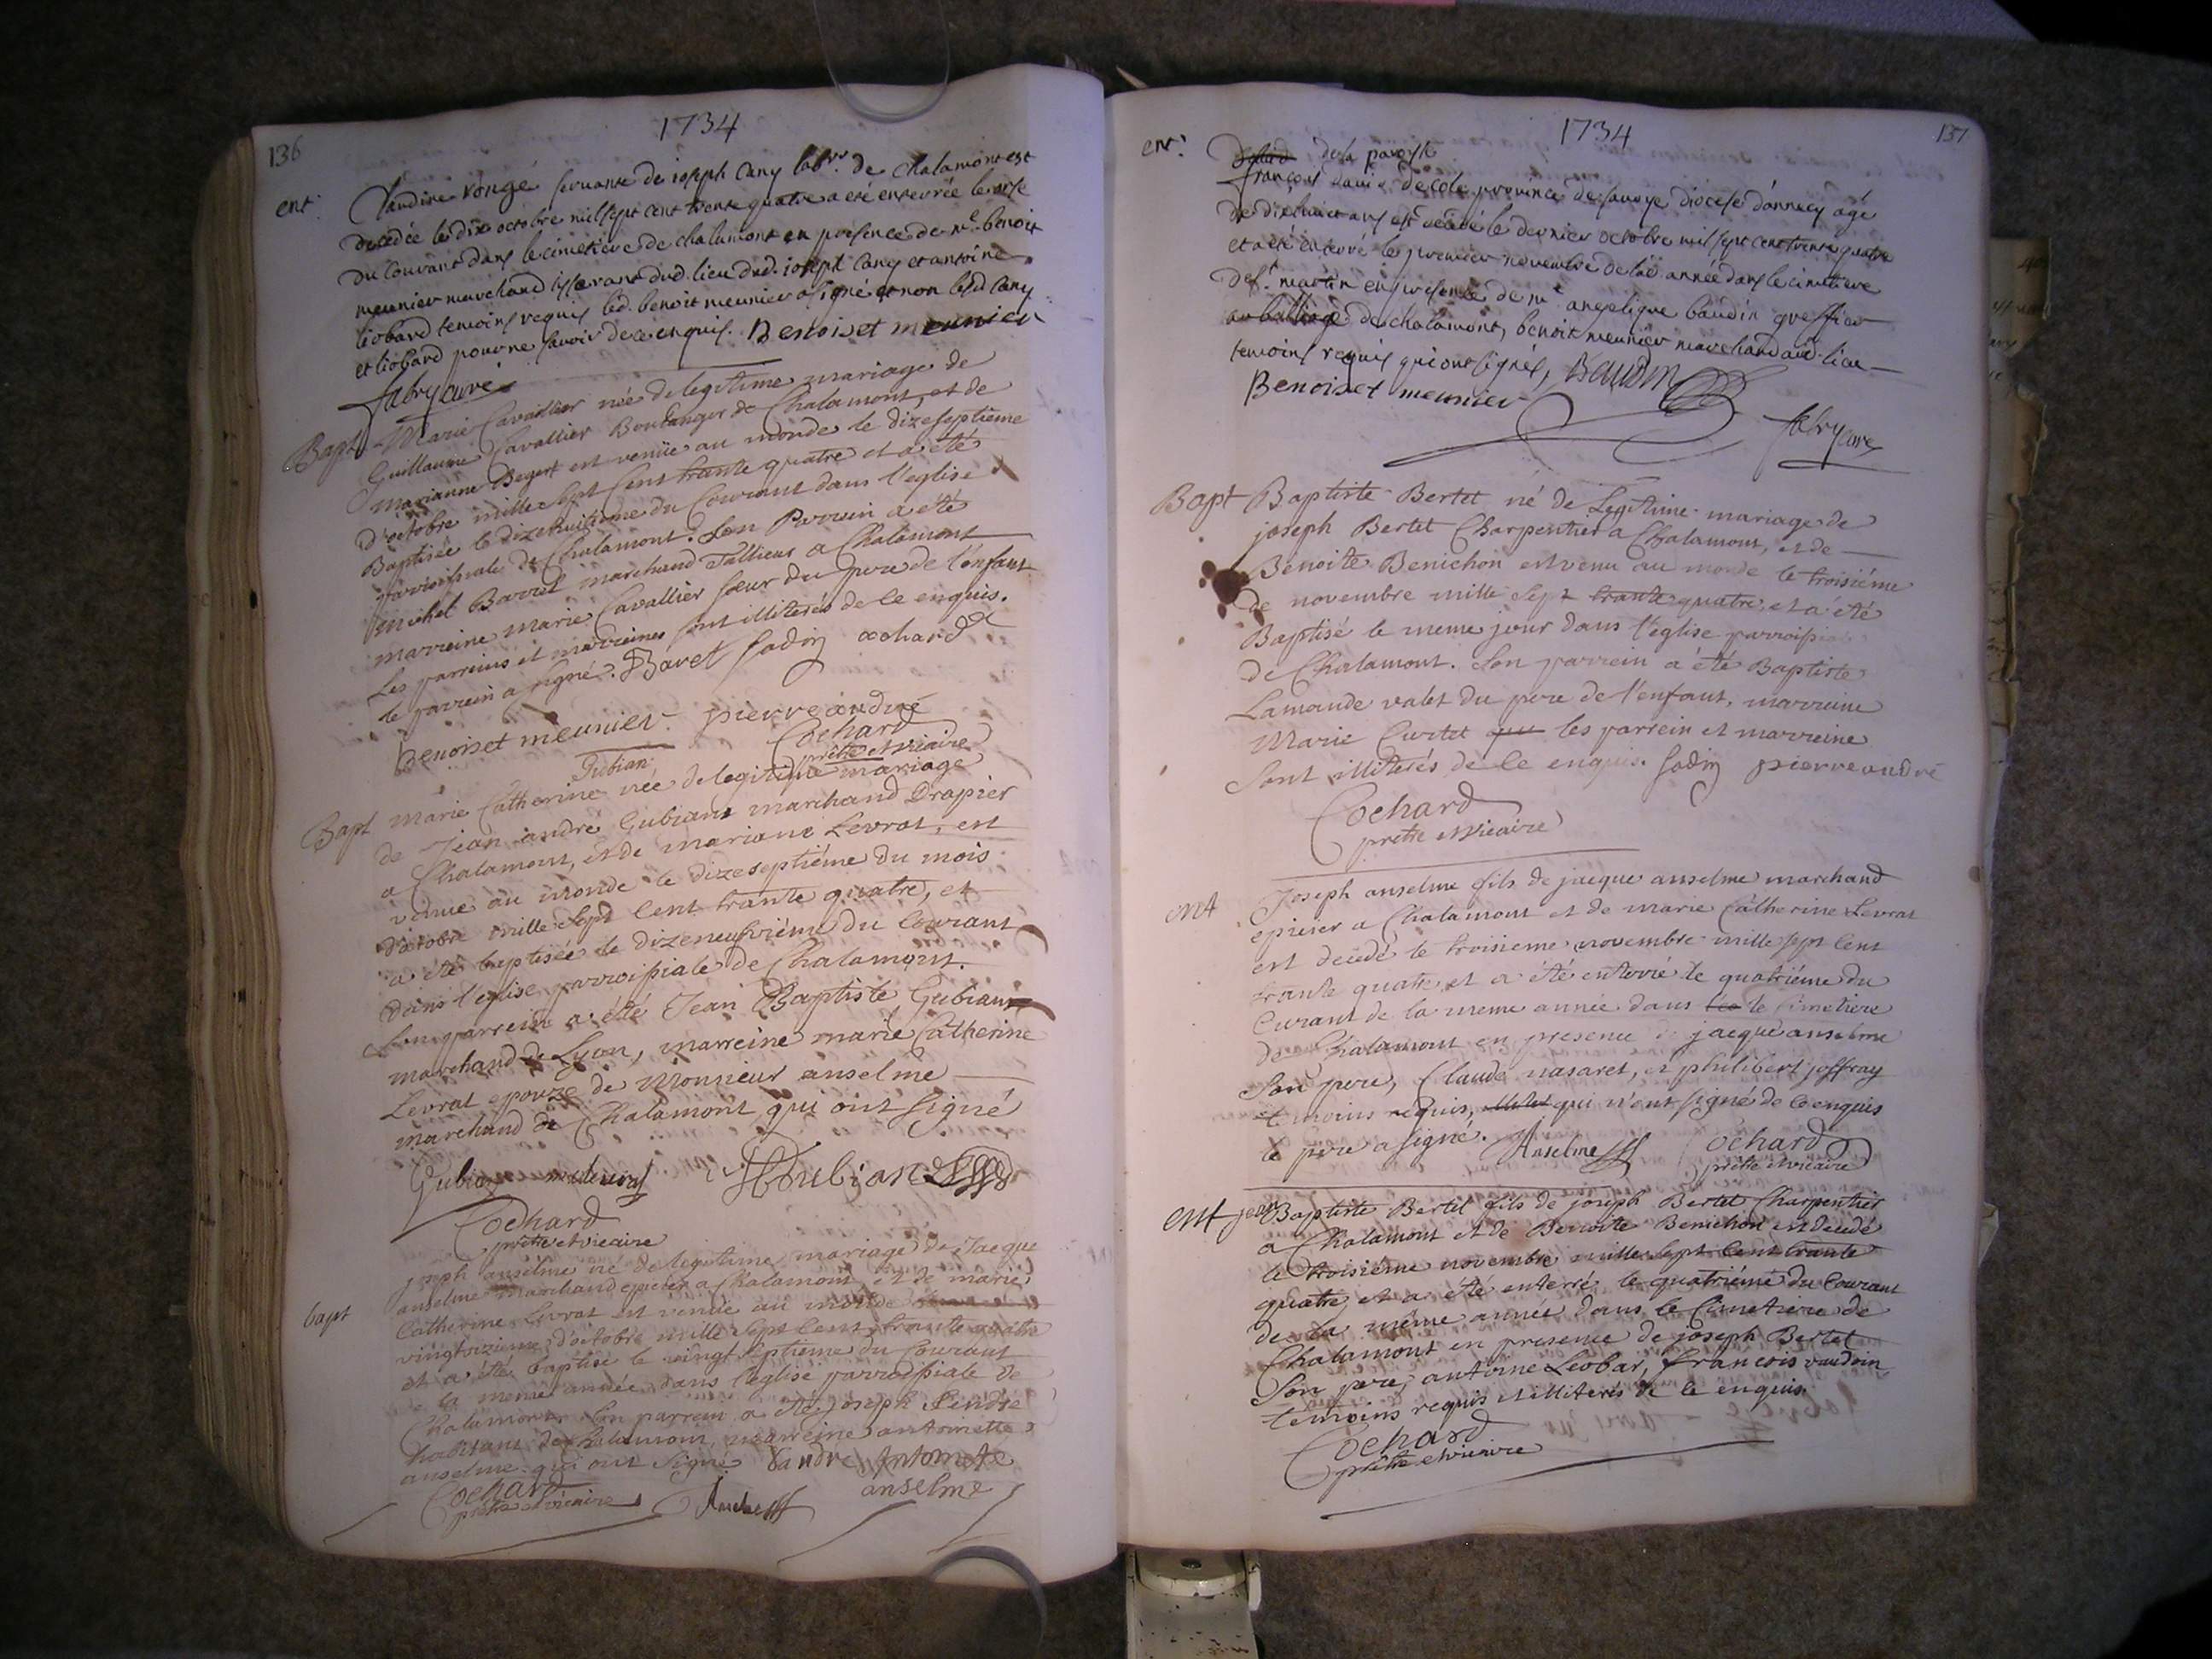 136
1734
ent.
Claudine rongé servante de joseph Cany lab.rs de chalamont est
decedée le dix octobre mil sept cent trente quatre a eté enterrée le onse
du Courant dans le cimetiere de chalamont en presence de m.e benoit
meunier marchand tisserant dud. lieu dud. joseph Cany et antoine
liobard temoins requis led. benoit meunier a signé et non led Cany
et liobard pour ne savoir de ce enquis. Benoiset meunier
fabry curé
Bapt. Marie Cavallier née de legitime mariage de
Guillaume Cavallier Boulanger de Chalamont, et de
marianne Begert est venüe au monde le dizeseptieme
d'octobre mille sept Cent trante quatre et a été
Baptisée le dizehuitieme du Courant dans l'eglise
parroissiale de Chalamont. Son Parrain a été
michel Barret marchand Tallieur a Chalamont
marreine marie Cavallier soeur du pere de l'enfant
Les parreins et marreines sont illiterés de Ce enquis.
le parrein a signé. Bavet Sadin cochard
Benoiset meunier pierre andré
Cochard
prêtre et vicaire
Gubian
Bapt marie Catherine née de legitime mariage
de Jean andré Gubiant marchand Drapier
a Chalamont, et de mariane Levrat, est
venue au monde le dizeseptiéme du mois
d'octobre mille Sept Cent trante quatre, et
a été baptisée le dizeneufviéme du Courant
dans l'eglise parroissiale de Chalamont.
Son parrein a été Jean Baptiste Gubiant
marchand de Lyon, marreine marie Catherine
Levrat epouze de Monsieur anselme
marchand de Chalamont qui ont signé
Gubian m c levrat Gubian
Cochard
prêtre et vicaire
bapt
joseph anselme né de legitime mariage de Jacque
anselme marchand epicier a Chalamont et de marie
Catherine Levrat est venue au monde
vingtroizieme d'octobre mille Sept Cent trante quatre
et a été baptisé le vingt septieme du Courant
de la meme année dans l'eglise parroissiale de
Chalamont. Son parrein a été joseph
habitant de Chalamont, marreine antoinette
anselme qui ont Signé Vandre Antonete
anselme
Cochard
prêtre et vicaire Anselme
1734
137
ent.
de la paroysse
françois davi decole province de savoye diocese d'annecy agé
de dixhuict ans est decedé le dernier octobre mil sept cent trente quatre
et a eté enterré le premier novembre de lad année dans le cimetiere
de s.t martin en presence de m.e angelique baudin greffier
au balliage de chalamont, benoit meunier marchand aud. lieu
temoins requis qui ont signés, Baudin
Benoiset meunier
fabry curé
Bapt Baptiste Bertet né de Legitime mariage de
joseph Bertet Charpentier a Chalamont, et de
Benoite Benichon est venu au monde le troisiéme
de novembre mille Sept trante quatre et a été
Baptisé le meme jour dans l'eglise parroissiale
de Chalamont. Son parrein a été Baptiste
Lamande valet du pere de l'enfant, marreine
Marie Curtet qui les parrein et marreine
Sont illiterés de Ce enquis. Sadin pierre andré
Cochard
prêtre et vicaire
ent Joseph anselme fils de jacque anselme marchand
epicier a Chalamont et de marie Catherine Levrat
est decedé le troisieme novembre mille sept Cent
trante quatre et a été enterré le quatriéme du
Curant de la meme année dans le Cimetiere
de Chalamont en presence de jacque anselme
Son pere, Claude nasaret, et philibert joffray
temoins requis, qui n'ont signé de Ce enquis
le pere a signé. Anselme Cochard
prêtre et vicaire
ent jean Baptiste Bertet fils de joseph Bertet Charpentier
a Chalamont et de Benoite Benichon est decedé
le troisiéme novembre mille Sept Cent trante
quatre et a été enterré le quatriéme du Courant
de la même année dans le Cimetiere de
Chalamont en presence de joseph Bertet
Son pere, antoine Leobar, francois vaudoin
temoins requis et illiterés de Ce enquis.
Cochard
prêtre et vicaire